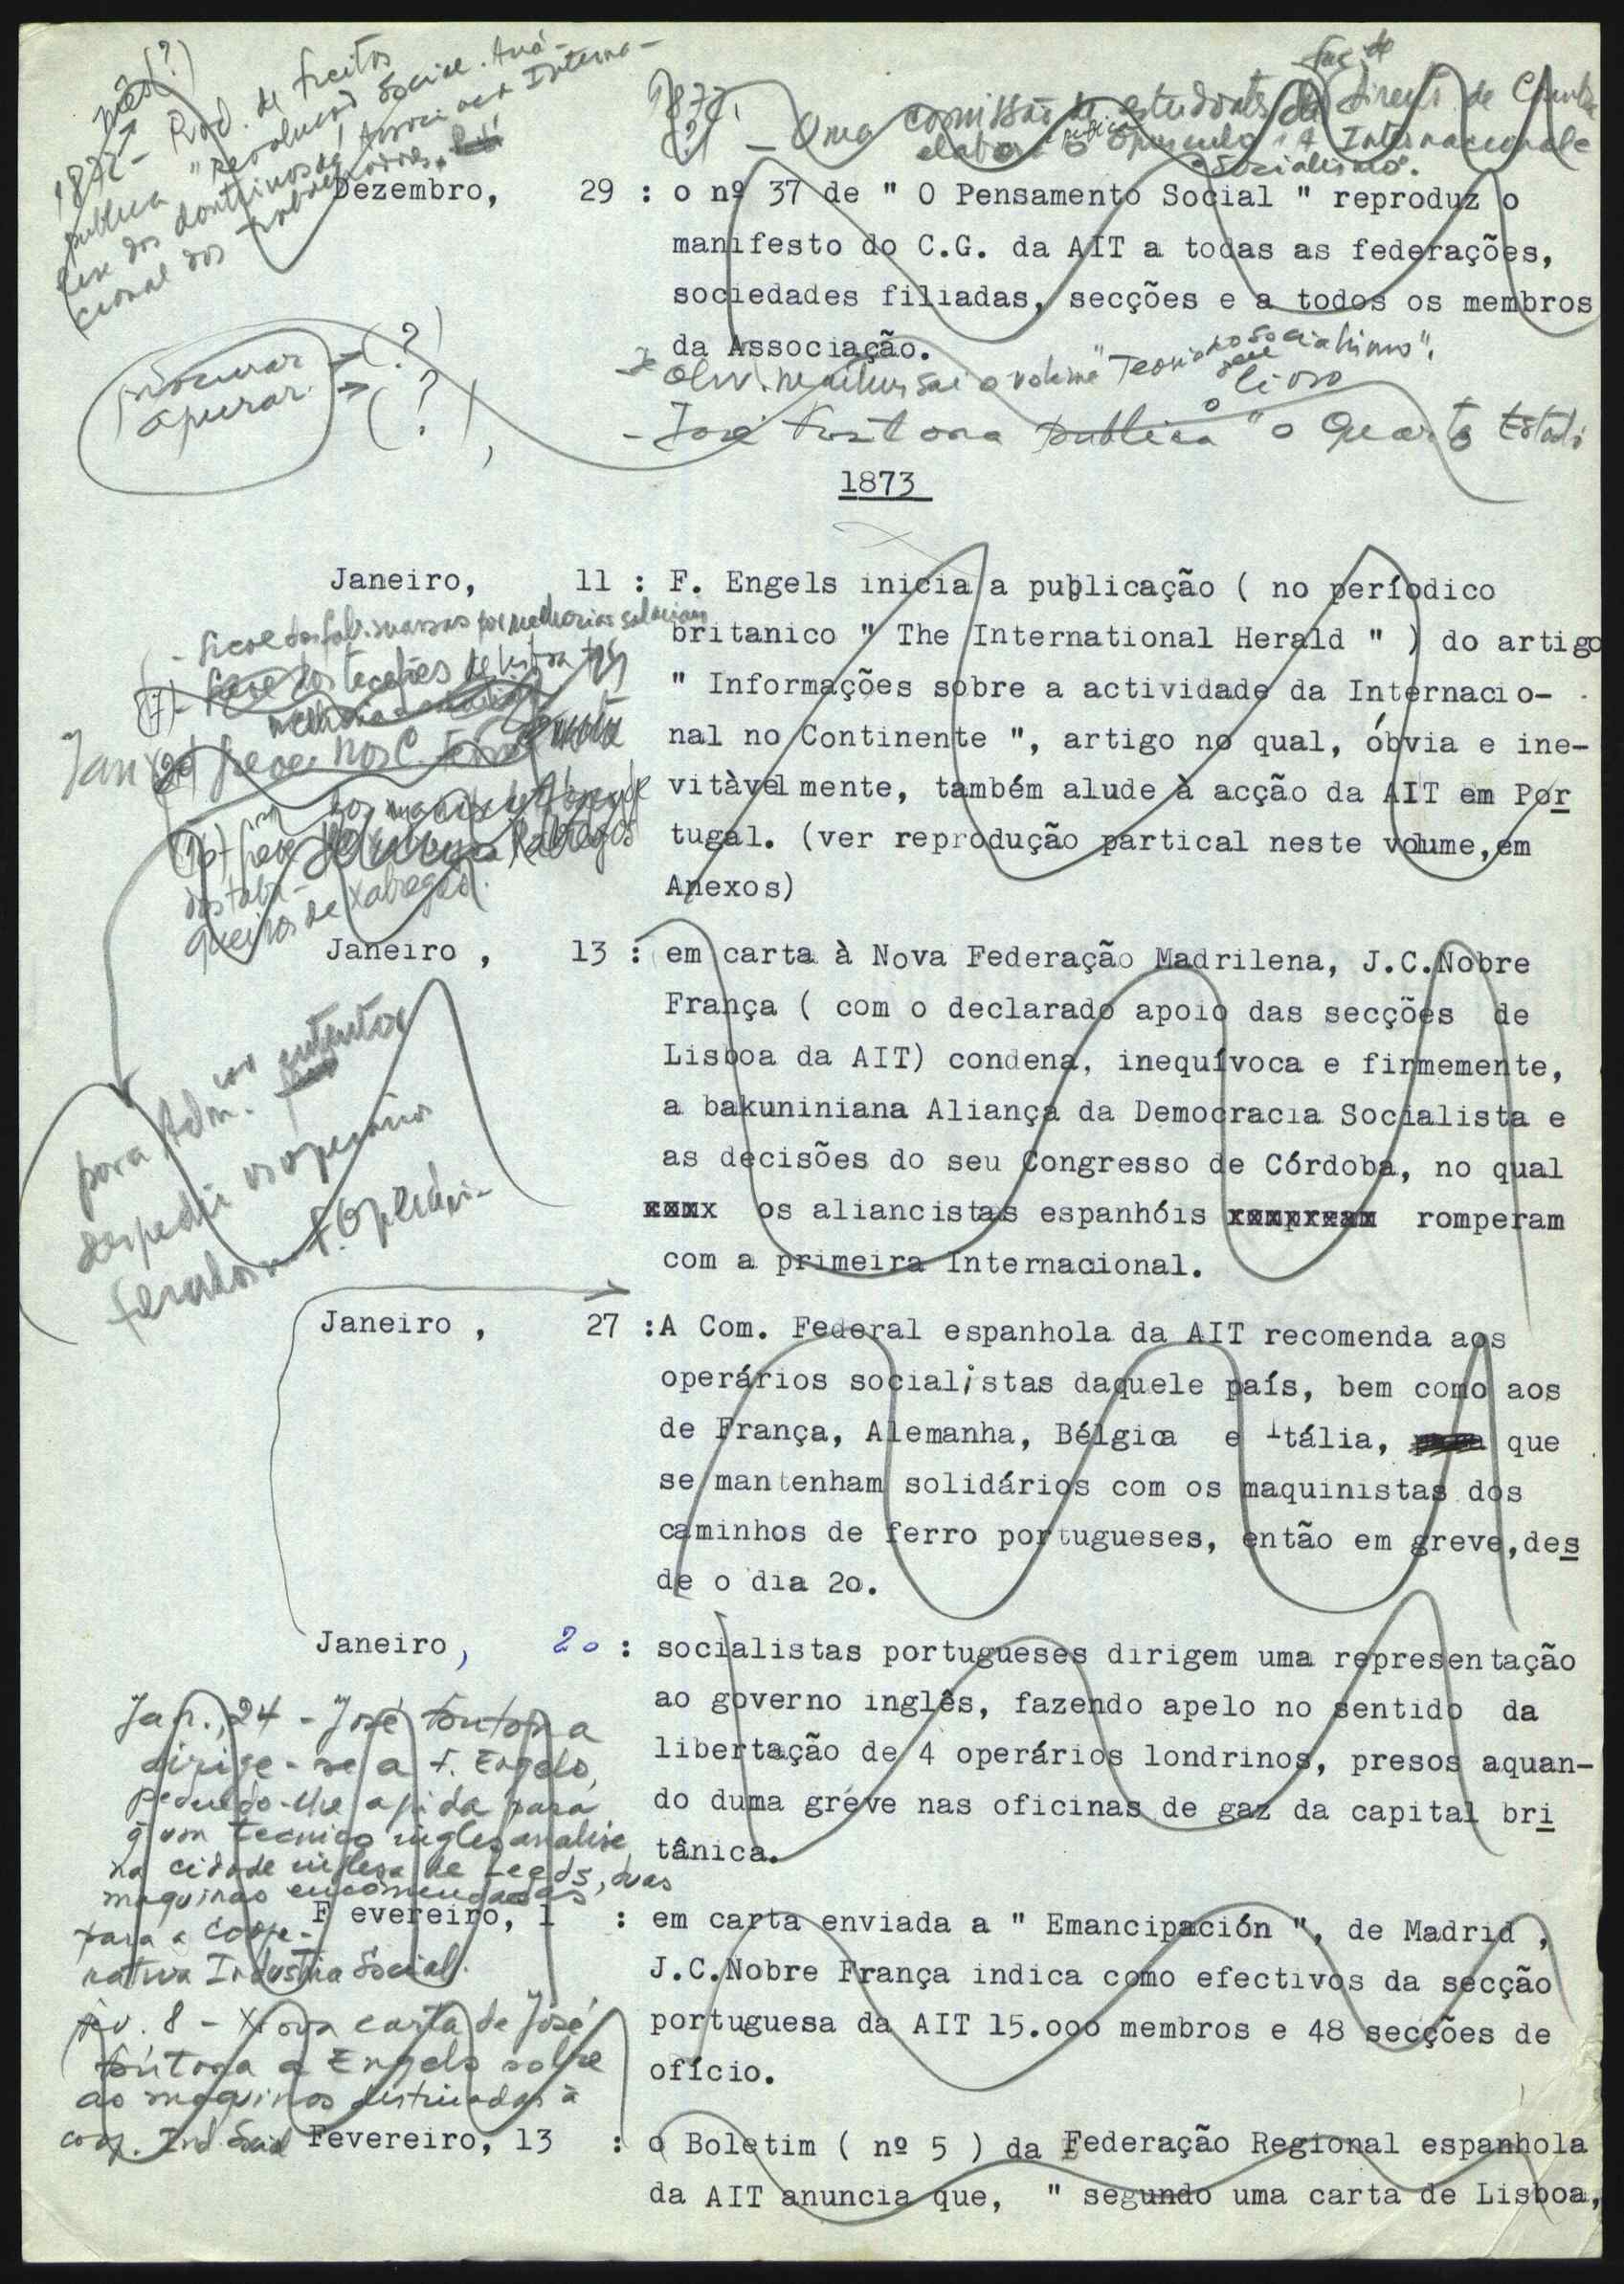 mês (?)
1872 - Rod. de Freitas
publica "Revolução Social. Aná-
lise das doutrinas da Associação Interna-
cional dos trabalhadores.
1872.
(?) - Uma comissão de estudantes da Fac. de Direito de
elabora e publica o opusculo "A Internacional e
o Socialismo".
Dezembro, 29 : o nº 37 de " O Pensamento Social " reproduz o
manifesto do C.G. da AIT a todas as federações,
sociedades filiadas, secções e a todos os membros
da Associação.
procurar → (?)
apurar → (?)
sai o volume "Teoria do Socialismo".
- José Fontana publica o seu livro "o Quarto Estado
1873
Janeiro, 11 : F. Engels inicia a publicação ( no períodico
britanico " The International Herald " ) do artigo
" Informações sobre a actividade da Internacio-
nal no Continente ", artigo no qual, óbvia e ine-
vitàvelmente, também alude à acção da AIT em Por
tugal. (ver reprodução partical neste volume,em
Anexos)
por melhorias salariais
(7) - Greve dos tecelões
Jan (20) greve nos C. Ferro
dos taba-
queiros de Xabregas.
Janeiro , 13 : em carta à Nova Federação Madrilena, J.C.Nobre
França ( com o declarado apoio das secções de
Lisboa da AIT) condena, inequívoca e firmemente,
a bakuniniana Aliança da Democracia Socialista e
as decisões do seu Congresso de Córdoba, no qual
xxxx os aliancistas espanhóis romperam
com a primeira Internacional.
para Adm.
despedir os operários
Janeiro , 27 :A Com. Federal espanhola da AIT recomenda aos
operários socialistas daquele país, bem como aos
de França, Alemanha, Bélgica e Itália, que
se mantenham solidários com os maquinistas dos
caminhos de ferro portugueses, então em greve,des
de o dia 2o.
Janeiro, 20 : socialistas portugueses dirigem uma representação
ao governo inglês, fazendo apelo no sentido da
libertação de 4 operários londrinos, presos aquan-
do duma gréve nas oficinas de gaz da capital bri
tânica.
Jan., 24 - José Fontana
dirige-se a F. Engels,
pedindo-lhe ajuda para
q um tecnico inglês analise,
na cidade inglesa de Leeds, duas
maquinas encomendadas
para a Coope-
rativa Industria Social.
F evereiro, 1 : em carta enviada a " Emancipación ", de Madrid ,
J.C.Nobre França indica como efectivos da secção
portuguesa da AIT 15.ooo membros e 48 secções de
ofício.
Fev. 8 - Nova carta de José
Fontana a Engels sobre
as maquinas destinadas à
coop. Ind. Social
Fevereiro, 13 : o Boletim ( nº 5 ) da Federação Regional espanhola
da AIT anuncia que, " segundo uma carta de Lisboa,